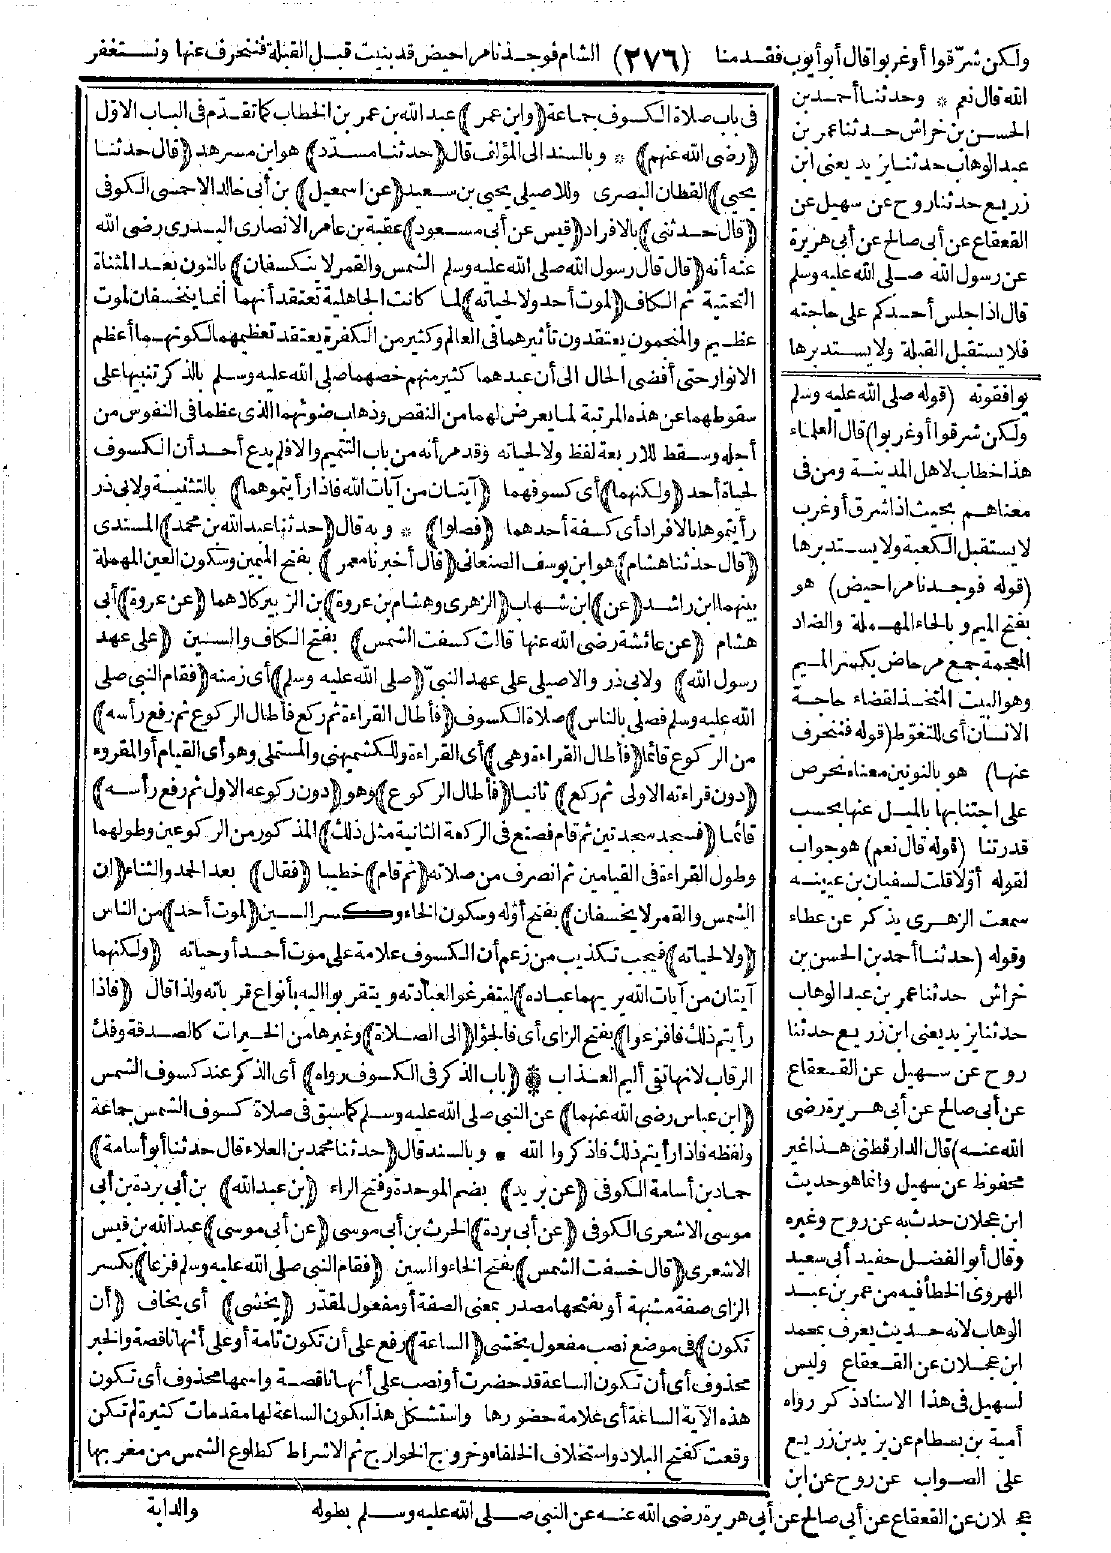 ولكن شرّقوا أو غربوا قال أبو أيوب فقدمنا (٢٧٦) الشام فوجدنا مراحيض قد بنيت قبل القبلة فننحرف عنها ونستغفر
الله قال نعم * وحدثنا أحمد بن
الحسن بن خراش حدثنا عمر بن
عبد الوهاب حدثنا يزيد يعني ابن
زريع حدثنا روح عن سهيل عن
القعقاع عن أبي صالح عن أبي هريرة
عن رسول الله صلى الله عليه وسلم
قال اذا جلس أحدكم على حاجته
فلا يستقبل القبلة ولا يستدبرها
يوافقونه (قوله صلى الله عليه وسلم
ولكن شرقوا أو غربوا) قال العلماء
هذا خطاب لاهل المدينة ومن في
معناهم بحيث اذا شرق أو غرب
لا يستقبل الكعبة ولا يستدبرها
(قوله فوجدنا مراحيض) هو
بفتح الميم وبالحاء المهملة والضاد
المعجمة جمع مرحاض بكسر الميم
وهو البيت المتخذ لقضاء حاجة
الانسان أي للتغوّط (قوله فننحرف
عنها) هو بالنونين معناه نحرص
على اجتنابها بالميل عنها بحسب
قدرتنا (قوله قال نعم) هو جواب
لقوله أولا قلت لسفيان بن عيينة
سمعت الزهرى يذكر عن عطاء
وقوله (حدثنا أحمد بن الحسن بن
خراش حدثنا عمر بن عبد الوهاب
حدثنا يزيد يعني ابن زريع حدثنا
روح عن سهيل عن القعقاع
عن أبي صالح عن أبي هريرة رضى
الله عنه) قال الدارقطني هذا غير
محفوظ عن سهيل وانما هو حديث
ابن عجلان حدث به عن روح وغيره
وقال أبو الفضل حفيد أبي سعيد
الهروى الخطأ فيه من عمر بن عبد
الوهاب لانه حديث يعرف بمحمد
ابن عجلان عن القعقاع وليس
لسهيل في هذا الاسناد ذكر رواه
أمية بن بسطام عن يزيد بن زريع
على الصواب عن روح عن ابن
في باب صلاة الكسوف جماعة ﴿وابن عمر﴾ عبد الله بن عمر بن الخطاب كما تقدّم في الباب الاوّل
﴿رضى الله عنهم﴾ * وبالسند الى المؤلف قال ﴿حدثنا مسدّد﴾ هو ابن مسرهد ﴿قال حدثنا
يحيى﴾ القطان البصرى وللاصيلى يحيى بن سعيد ﴿عن اسمعيل﴾ بن أبي خالد الاحمسى الكوفى
﴿قال حدثني﴾ بالافراد ﴿قيس عن أبي مسعود﴾ عقبة بن عامر الانصارى البدرى رضى الله
عنه أنه ﴿قال قال رسول الله صلى الله عليه وسلم الشمس والقمر لا ينكسفان﴾ بالنون بعد المثناة
التحتية ثم الكاف ﴿لموت أحد ولا لحياته﴾ لما كانت الجاهلية تعتقد أنهما انما ينخسفان لموت
عظيم والمنجمون يعتقدون تأثيرهما في العالم وكثير من الكفرة يعتقد تعظيمهما لكونهما أعظم
الانوار حتى أفضى الحال الى أن عبدهما كثير منهم خصهما صلى الله عليه وسلم بالذكر تنبيها على
سقوطهما عن هذه المرتبة لما يعرض لهما من النقص وذهاب ضوئهما الذى عظما في النفوس من
أجله وسقط للاربعة لفظ ولا لحياته وقد مر أنه من باب التتميم والا فلم يدع أحد أن الكسوف
لحياة أحد ﴿ولكنهما﴾ أى كسوفهما ﴿آيتان من آيات الله فاذا رأيتموهما﴾ بالتثنية ولابي ذر
رأيتموها بالافراد أى كسفة أحدهما ﴿فصلوا﴾ * وبه قال ﴿حدثنا عبد الله بن محمد﴾ المسندى
﴿قال حدثنا هشام﴾ هو ابن يوسف الصنعاني ﴿قال أخبرنا معمر﴾ بفتح الميمين وسكون العين المهملة
بينهما ابن راشد ﴿عن﴾ ابن شهاب ﴿الزهرى وهشام بن عروة﴾ بن الزبير كلاهما ﴿عن عروة﴾ أبي
هشام ﴿عن عائشة رضى الله عنها قالت كسفت الشمس﴾ بفتح الكاف والسين ﴿على عهد
رسول الله﴾ ولابي ذر والاصيلى على عهد النبيّ ﴿صلى الله عليه وسلم﴾ أى زمنه ﴿فقام النبي صلى
الله عليه وسلم فصلى بالناس﴾ صلاة الكسوف ﴿فأطال القراءة ثم ركع فأطال الركوع ثم رفع رأسه﴾
من الركوع قائما ﴿فأطال القراءة وهى﴾ أى القراءة وللكشميهني والمستملى وهو أى القيام أو المقروء
﴿دون قراءته الاولى ثم ركع﴾ ثانيا ﴿فأطال الركوع﴾ وهو ﴿دون ركوعه الاول ثم رفع رأسه﴾
قائما ﴿فسجد سجدتين ثم قام فصنع في الركعة الثانية مثل ذلك﴾ المذكور من الركوعين وطولهما
وطول القراءة في القيامين ثم انصرف من صلاته ﴿ثم قام﴾ خطيبا ﴿فقال﴾ بعد الحمد والثناء ﴿ان
الشمس والقمر لا يخسفان﴾ بفتح أوّله وسكون الخاء وكسر السين ﴿لموت أحد﴾ من الناس
﴿ولا لحياته﴾ فيجب تكذيب من زعم أن الكسوف علامة على موت أحد أو حياته ﴿ولكنهما
آيتان من آيات الله يريهما عباده﴾ ليتفرغوا لعبادته ويتقربوا اليه بأنواع قرباته ولذا قال ﴿فاذا
رأيتم ذلك فافزعوا﴾ بفتح الزاى أى فالجؤا ﴿الى الصلاة﴾ وغيرها من الخيرات كالصدقة وفك
الرقاب لانها تقى أليم العذاب * ﴿باب الذكر في الكسوف رواه﴾ أى الذكر عند كسوف الشمس
﴿ابن عباس رضى الله عنهما﴾ عن النبي صلى الله عليه وسلم كما سبق في صلاة كسوف الشمس جماعة
ولفظه فاذا رأيتم ذلك فاذكروا الله * وبالسند قال ﴿حدثنا محمد بن العلاء قال حدثنا أبو أسامة﴾
حماد بن أسامة الكوفى ﴿عن بريد﴾ بضم الموحدة وفتح الراء ﴿بن عبد الله﴾ بن أبي بردة بن أبي
موسى الاشعرى الكوفى ﴿عن أبي بردة﴾ الحرث بن أبي موسى ﴿عن أبي موسى﴾ عبد الله بن قيس
الاشعرى ﴿قال خسفت الشمس﴾ بفتح الخاء والسين ﴿فقام النبي صلى الله عليه وسلم فزعا﴾ بكسر
الزاى صفة مشبهة أو بفتحها مصدر بمعنى الصفة أو مفعول لمقدّر ﴿يخشى﴾ أى يخاف ﴿أن
تكون﴾ في موضع نصب مفعول يخشى ﴿الساعة﴾ رفع على أن تكون تامة أو على أنها ناقصة والخبر
محذوف أى أن تكون الساعة قد حضرت أو نصب على أنها ناقصة واسمها محذوف أى تكون
هذه الآية الساعة أى علامة حضورها واستشكل هذا بكون الساعة لها مقدمات كثيرة لم تكن
وقعت كفتح البلاد واستخلاف الخلفاء وخروج الخوارج ثم الاشراط كطلوع الشمس من مغربها
عجلان عن القعقاع عن أبي صالح عن أبي هريرة رضى الله عنه عن النبي صلى الله عليه وسلم بطوله والدابة